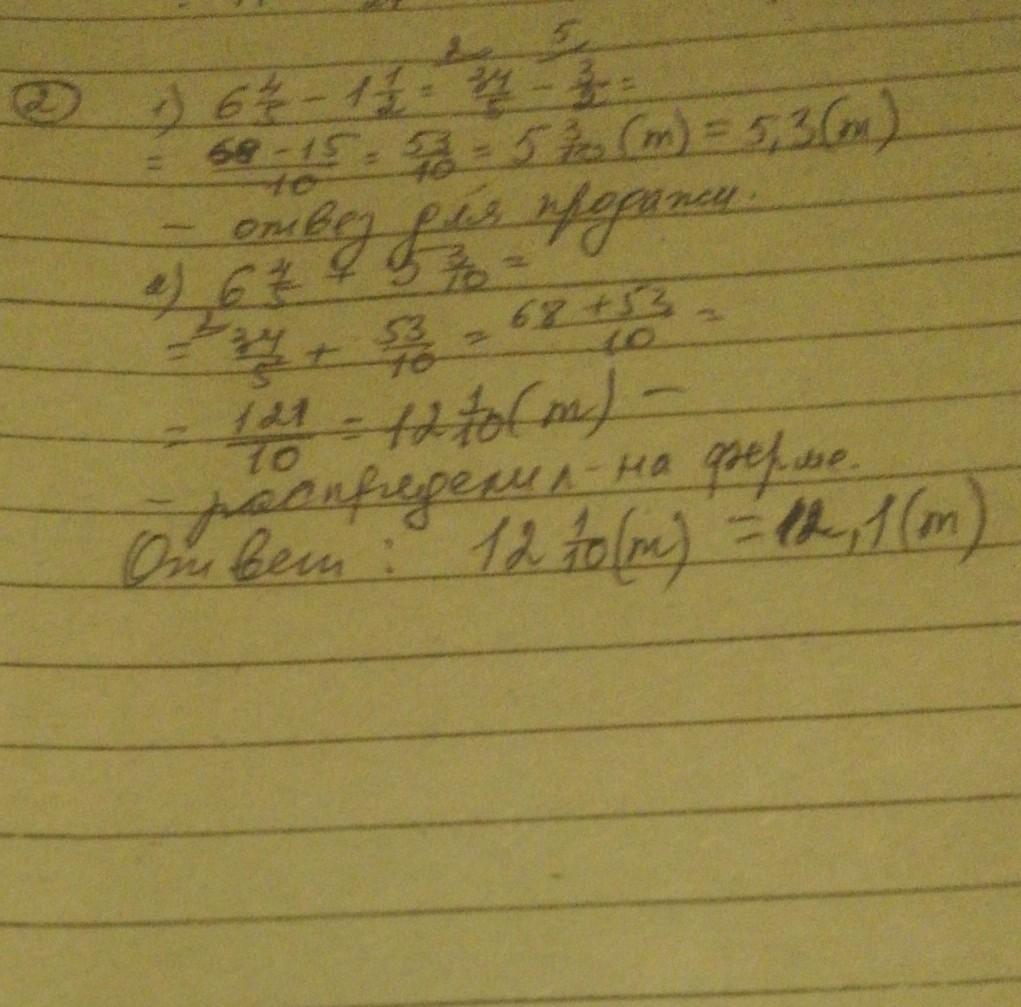 ② 1) 6 4/5 - 1 1/2 = 34/5 - 3/2 =
= 68 - 15/10 = 53/10 = 5 3/10 (т) = 5,3 (т)
- отвез для продажи.
2) 6 4/5 + 5 3/10 =
= 34/5 + 53/10 = 68 + 53/10 =
= 121/10 = 12 1/10 (т) -
- распределил - на ферме.
Ответ: 12 1/10 (т) = 12,1 (т)